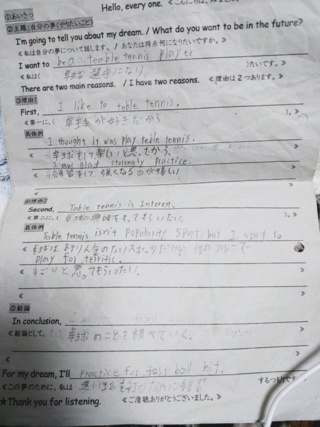 Hello, every one.
①あいさつ
②主題:自分の夢(やりたいこと)
I'm going to tell you about my dream. / What do you want to be in the future?
≪私は自分の夢について話します。/ あなたは将来何になりたいですか。≫
I want to be a temble tennis player
≪私は( 卓球選手になり )たいです。≫
There are two main reasons. / I have two reasons. ≪理由は2つあります。≫
③理由1
First, I like to table tennis.
≪第一に、( 卓球が好きだから )。≫
具体例
I thought it was play teble tennis.
卓球をして楽しいと思ったから
I am glad storongly practice.
練習をして、強くなるのが嬉しい
④理由2
Second, Table tennis is Interen.
≪第二に、( 卓球に興味をもってもらいたい )。≫
具体例
Table tennis isn't popularity spot, but I want to
play for terrific.
すごいと思ってもらいたい。
⑤結論
In conclusion,
≪結論として、 卓球のことを
For my dream, I'll practice for fass ball hit.
≪この夢のために、私は するつもりです
★Thank you for listening. ≪ご清聴ありがとうございました。≫